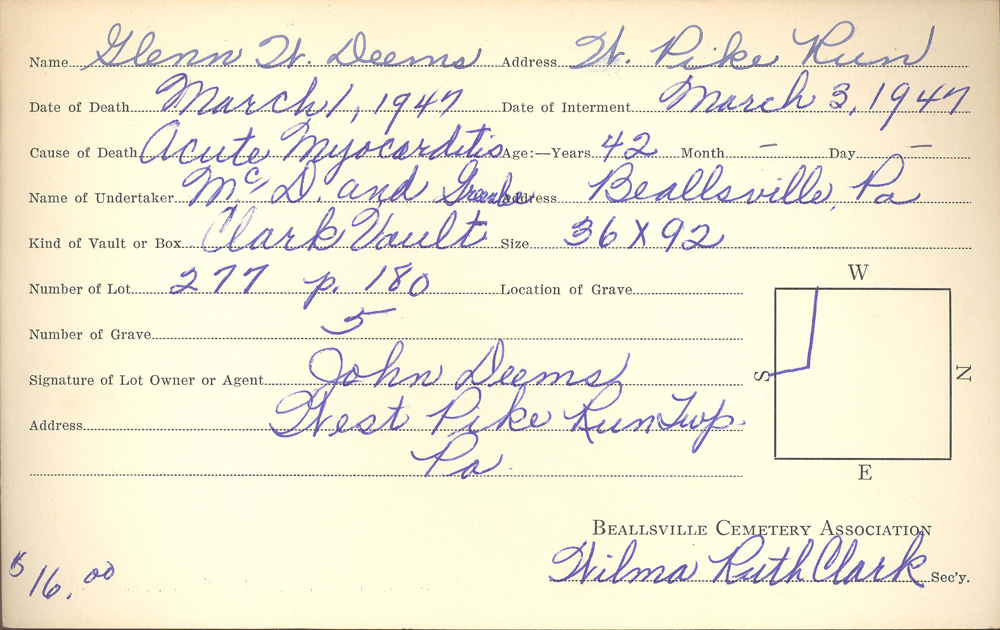 Name Glenn W. Deems Address W. Pike Run
Date of Death March 1, 1947 Date of Interment March 3, 1947
Cause of Death Acute Myocarditis Age:—Years 42 Month – Day –
Name of Undertaker Mc, D. and Address Beallsville, Pa
Kind of Vault or Box Clark Vault Size 36 X 92
Number of Lot 277 p. 180 Location of Grave
W
Number of Grave 5
Signature of Lot Owner or Agent John Deems
S N
Address West Pike Run Twp.
Pa.
E
BEALLSVILLE CEMETERY ASSOCIATION
$16.00 Wilma Ruth Clark Sec'y.